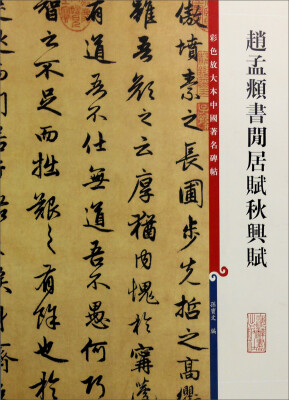 趙孟頫書閒居賦秋興賦
彩色放大本中國著名碑帖
孫寶文 編
傲墳素之長圃步先哲之高
雖吾顏之云厚猶内愧於甯蘧
有道吾不仕無道吾不愚何巧
智之不足而拙艱之有餘也